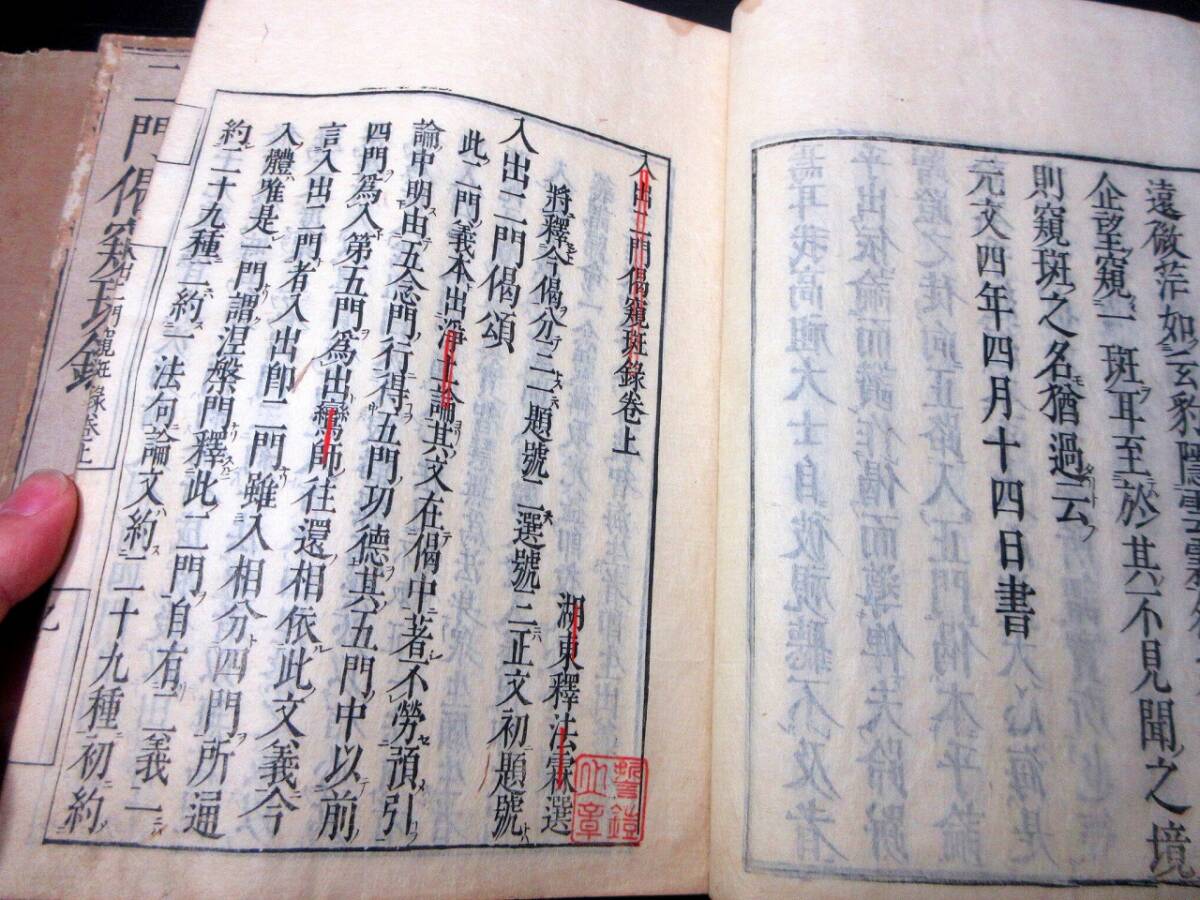 遠倣茫如玄豹隱雲霧
企望窺一斑耳至於其不見聞之境
則窺斑之名猶過云
元文四年四月十四日書
入出二門偈窺斑錄卷上
湖東釋法霖選
將釋今偈分二一題號二選號三正文初題號
入出二門偈頌
此二門義本出淨土論其文在偈中著不勞預引
論中明由五念門行得五門功德其五門中以前
四門爲入第五門爲出鸞師往還相依此文義今
言入出二門者入出卽二門雖入相分四門所通
入體唯是一門謂涅槃門釋此二門自有二義一
約二十九種二約一法句論文約二十九種初約
二門偈窺斑錄